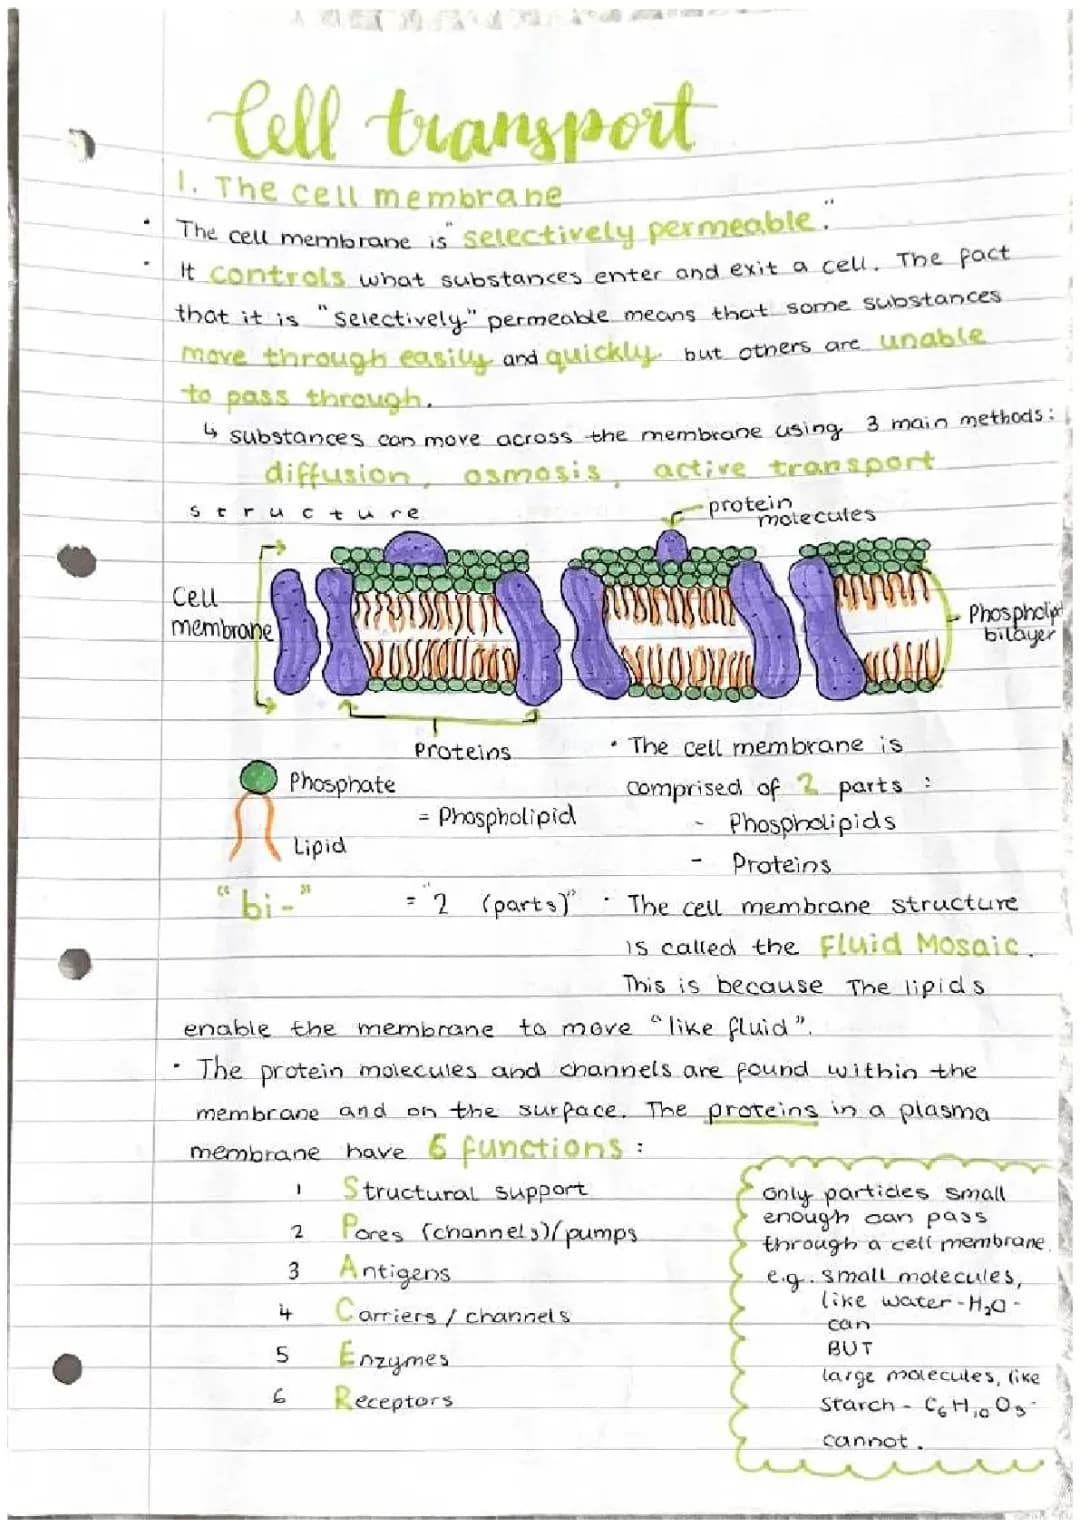 Cell transport
1. The cell membrane
• The cell membrane is "selectively permeable."
• It controls what substances enter and exit a cell. The fact
that it is "selectively" permeable means that some substances
move through easily and quickly but others are unable
to pass through.
↳ substances can move across the membrane using 3 main methods:
diffusion, osmosis, active transport
structure
protein
molecules
Cell
membrane
Phospholipid
bilayer
Proteins
Phosphate
= Phospholipid
Lipid
"bi-" = "2 (parts)"
• The cell membrane is
comprised of 2 parts :
- Phospholipids
- Proteins
• The cell membrane structure
is called the Fluid Mosaic.
This is because The lipids
enable the membrane to move "like fluid".
• The protein molecules and channels are found within the
membrane and on the surface. The proteins in a plasma
membrane have 6 functions :
1 Structural support
2 Pores (channels)/pumps
3 Antigens
4 Carriers / channels
5 Enzymes
6 Receptors
only particles small
enough can pass
through a cell membrane.
e.g. small molecules,
like water - H₂O -
can
BUT
large molecules, like
starch - C₆H₁₀O₅ -
cannot.